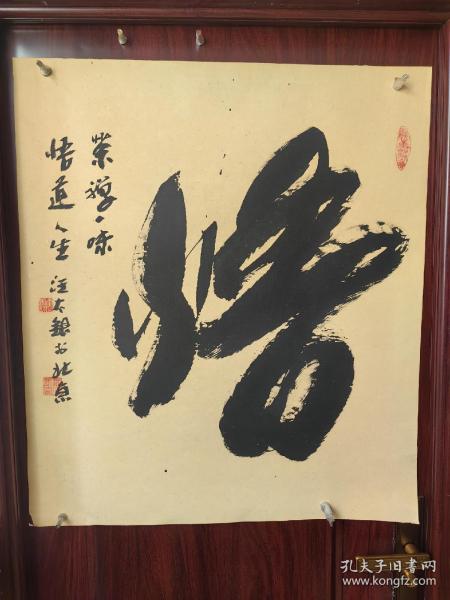 悟
茶禅一味
悟道人生 汪太银于北京
孔夫子旧书网
www.kongfz.com